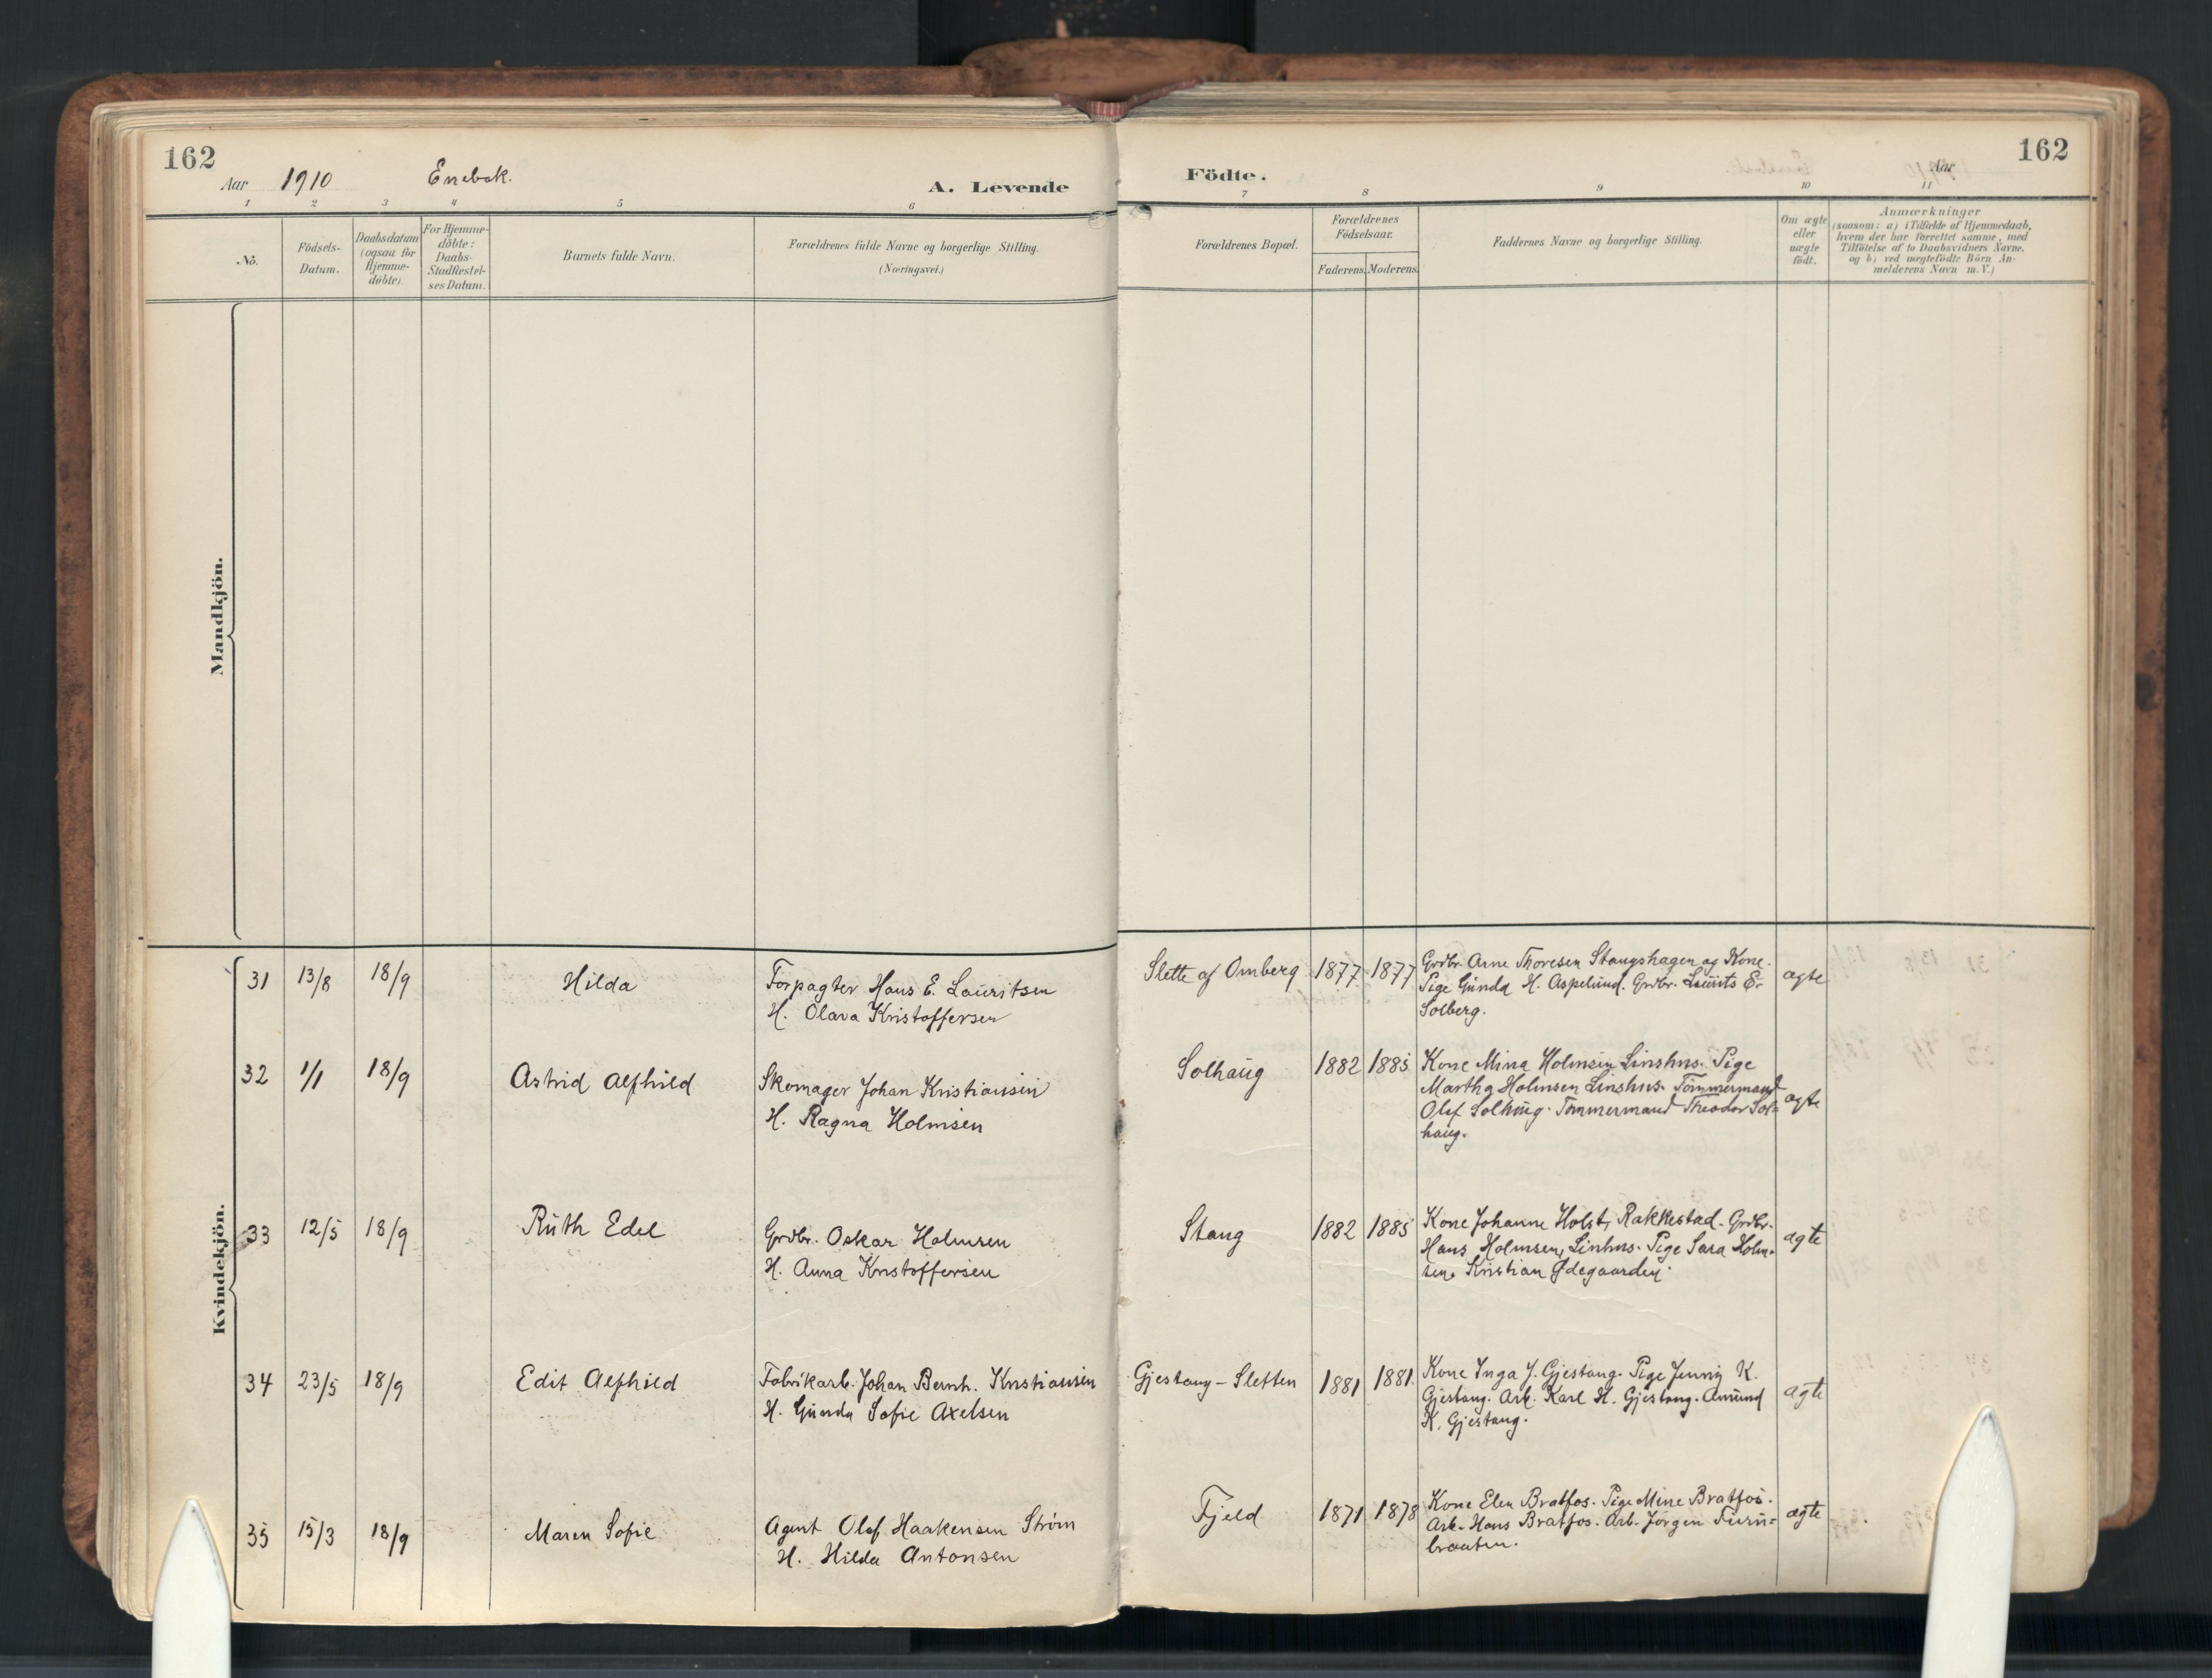 162
Aar 1910 Enebak.
A. Levende
Födte.
Aar
162
1 2 3 4 5 6 7 8 9 10 11
No.
Födsels-
Datum.
Daabsdatum
(ogsaa for
Hjemme-
döbte).
For Hjemme-
döbte:
Daabs-
Stadfæstel-
ses Datum.
Barnets fulde Navn.
Forældrenes fulde Navne og borgerlige Stilling.
(Næringsvei.)
Forældrenes Bopæl.
Forældrenes
Födselsaar.
Faderens. Moderens.
Faddernes Navne og borgerlige Stilling.
Om ægte
eller
uægte
födt.
Anmærkninger
(saasom: a) i Tilfælde af Hjemmedaab,
hvem der har forrettet samme, med
Tilföielse af to Daabsvidners Navne.
og b) ved uægtefödte Börn An-
melderens Navn m. V.)
Mandkjön.
Kvindekjön.
31 13/8 18/9 Hilda
Forpagter Hans E. Lauritsen
H. Olava Kristoffersen
Slette af Omberg 1877 1877
Grdbr. Arne Thoresen Stangshagen og Kone.
Pige Gunda H. Aspelund. Grdbr. Laurits E.
Solberg.
ægte
32 1/1 18/9 Astrid Alfhild
Skomager Johan Kristiansen
H. Ragna Holmsen
Solhaug 1882 1885
Kone Mina Holmsen Linshus. Pige
Martha Holmsen Linshus. Tømmermand
Olef Solhaug. Tømmermand Theodor Sol-
haug.
ægte
33 12/5 18/9 Ruth Edel
Grdbr. Oskar Holmsen
H. Anna Kristoffersen
Stang 1882 1885
Kone Johanne Holst, Rakkestad. Grdbr.
Hans Holmsen, Linhus. Pige Sara Holm-
sen. Kristian Ødegaarden.
ægte
34 23/5 18/9 Edit Alfhild
Fabrikarb. Johan Bernh. Kristiansen
H. Gunda Sofie Axelsen
Gjestang - Sletten 1881 1881
Kone Inga J. Gjestang. Pige Jenny K.
Gjestang. Arb. Karl H. Gjestang. Amund
K. Gjestang.
ægte
35 15/3 18/9 Maren Sofie
Agent Olaf Haakensen Strøm
H. Hilda Antonsen
Fjeld 1871 1878
Kone Elen Bratfos. Pige Mine Bratfos.
Arb. Hans Bratfos. Arb. Jørgen Furu=
braaten.
ægte